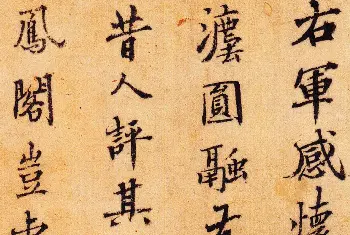 右軍感懷
圓融
昔人評其
鳳閣豈